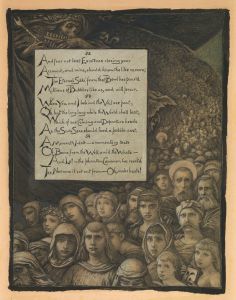 And fear not lest Existence closing your
Account, and mine, should know the like no more;
The Eternal Sáki from that Bowl has pour'd
Millions of Bubbles like us, and will pour.
When You and I behind the Veil are past,
Oh but the long long while the World shall last,
Which of our Coming and Departure heeds
As the Sev'n Seas should heed a pebble-cast.
A Moment's Halt—a momentary taste
Of Being from the Well amid the Waste—
And Lo! the phantom Caravan has reach'd
The Nothing it set out from—Oh, make haste!